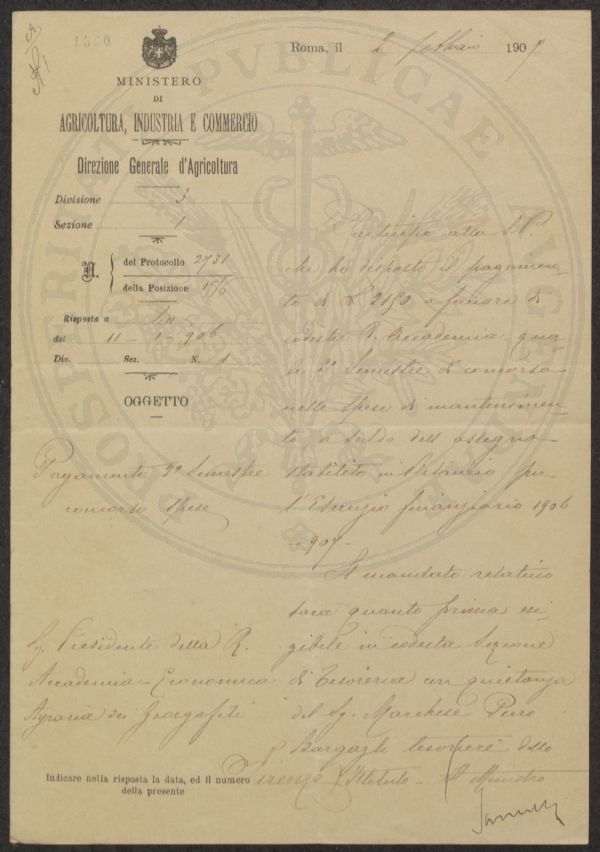 1330
Roma, il 2 febbraio 1907
MINISTERO
DI
AGRICOLTURA, INDUSTRIA E COMMERCIO
Direzione Generale d'Agricoltura
Divisione 3
Sezione 1
N. del Protocollo 2731
della Posizione 15/6
Risposta a
del 11 - 1 - 906
Div. Sez. N. 1
OGGETTO
Pagamento 2º Semestre
concorso spese
Sig. Presidente della R.
Accademia Economica
Agraria dei Georgofili
Firenze
Partecipo alla S.V.
che ho disposto il pagamen-
to di £ 2150 a favore di
codesta R. Accademia qua-
le 2º Semestre di concorso
nelle spese di mantenimen-
to a saldo dell'assegno
stabilito in bilancio per
l'Esercizio finanziario 1906
-907-
Il mandato relativo
sarà quanto prima esi-
gibile in codesta Sezione
di Tesoreria con quietanza
del Sig. Marchese Piero
Bargagli tesoriere dello
Istituto - Il Ministro
Indicare nella risposta la data, ed il numero
della presente
PROSPERITATI PUBLICAE AUGENDAE